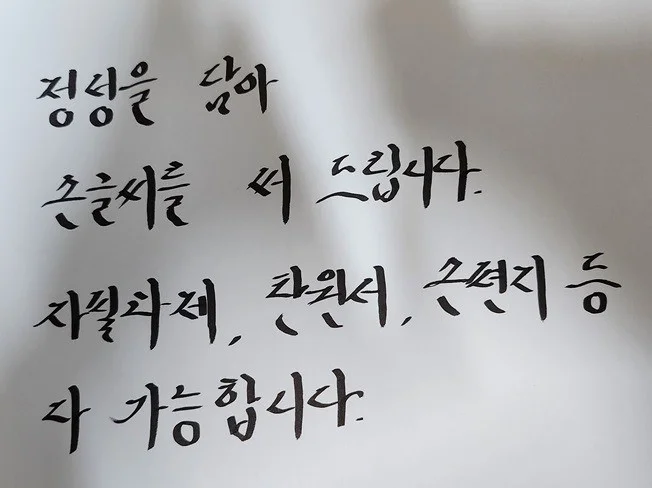 정성을 담아
손글씨를 써 드립니다.
자필과제, 탄원서, 손편지 등
다 가능합니다.